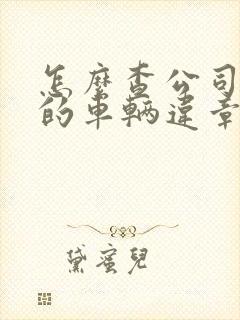 怎麽查公司
的車輛違章
黛蜜兒